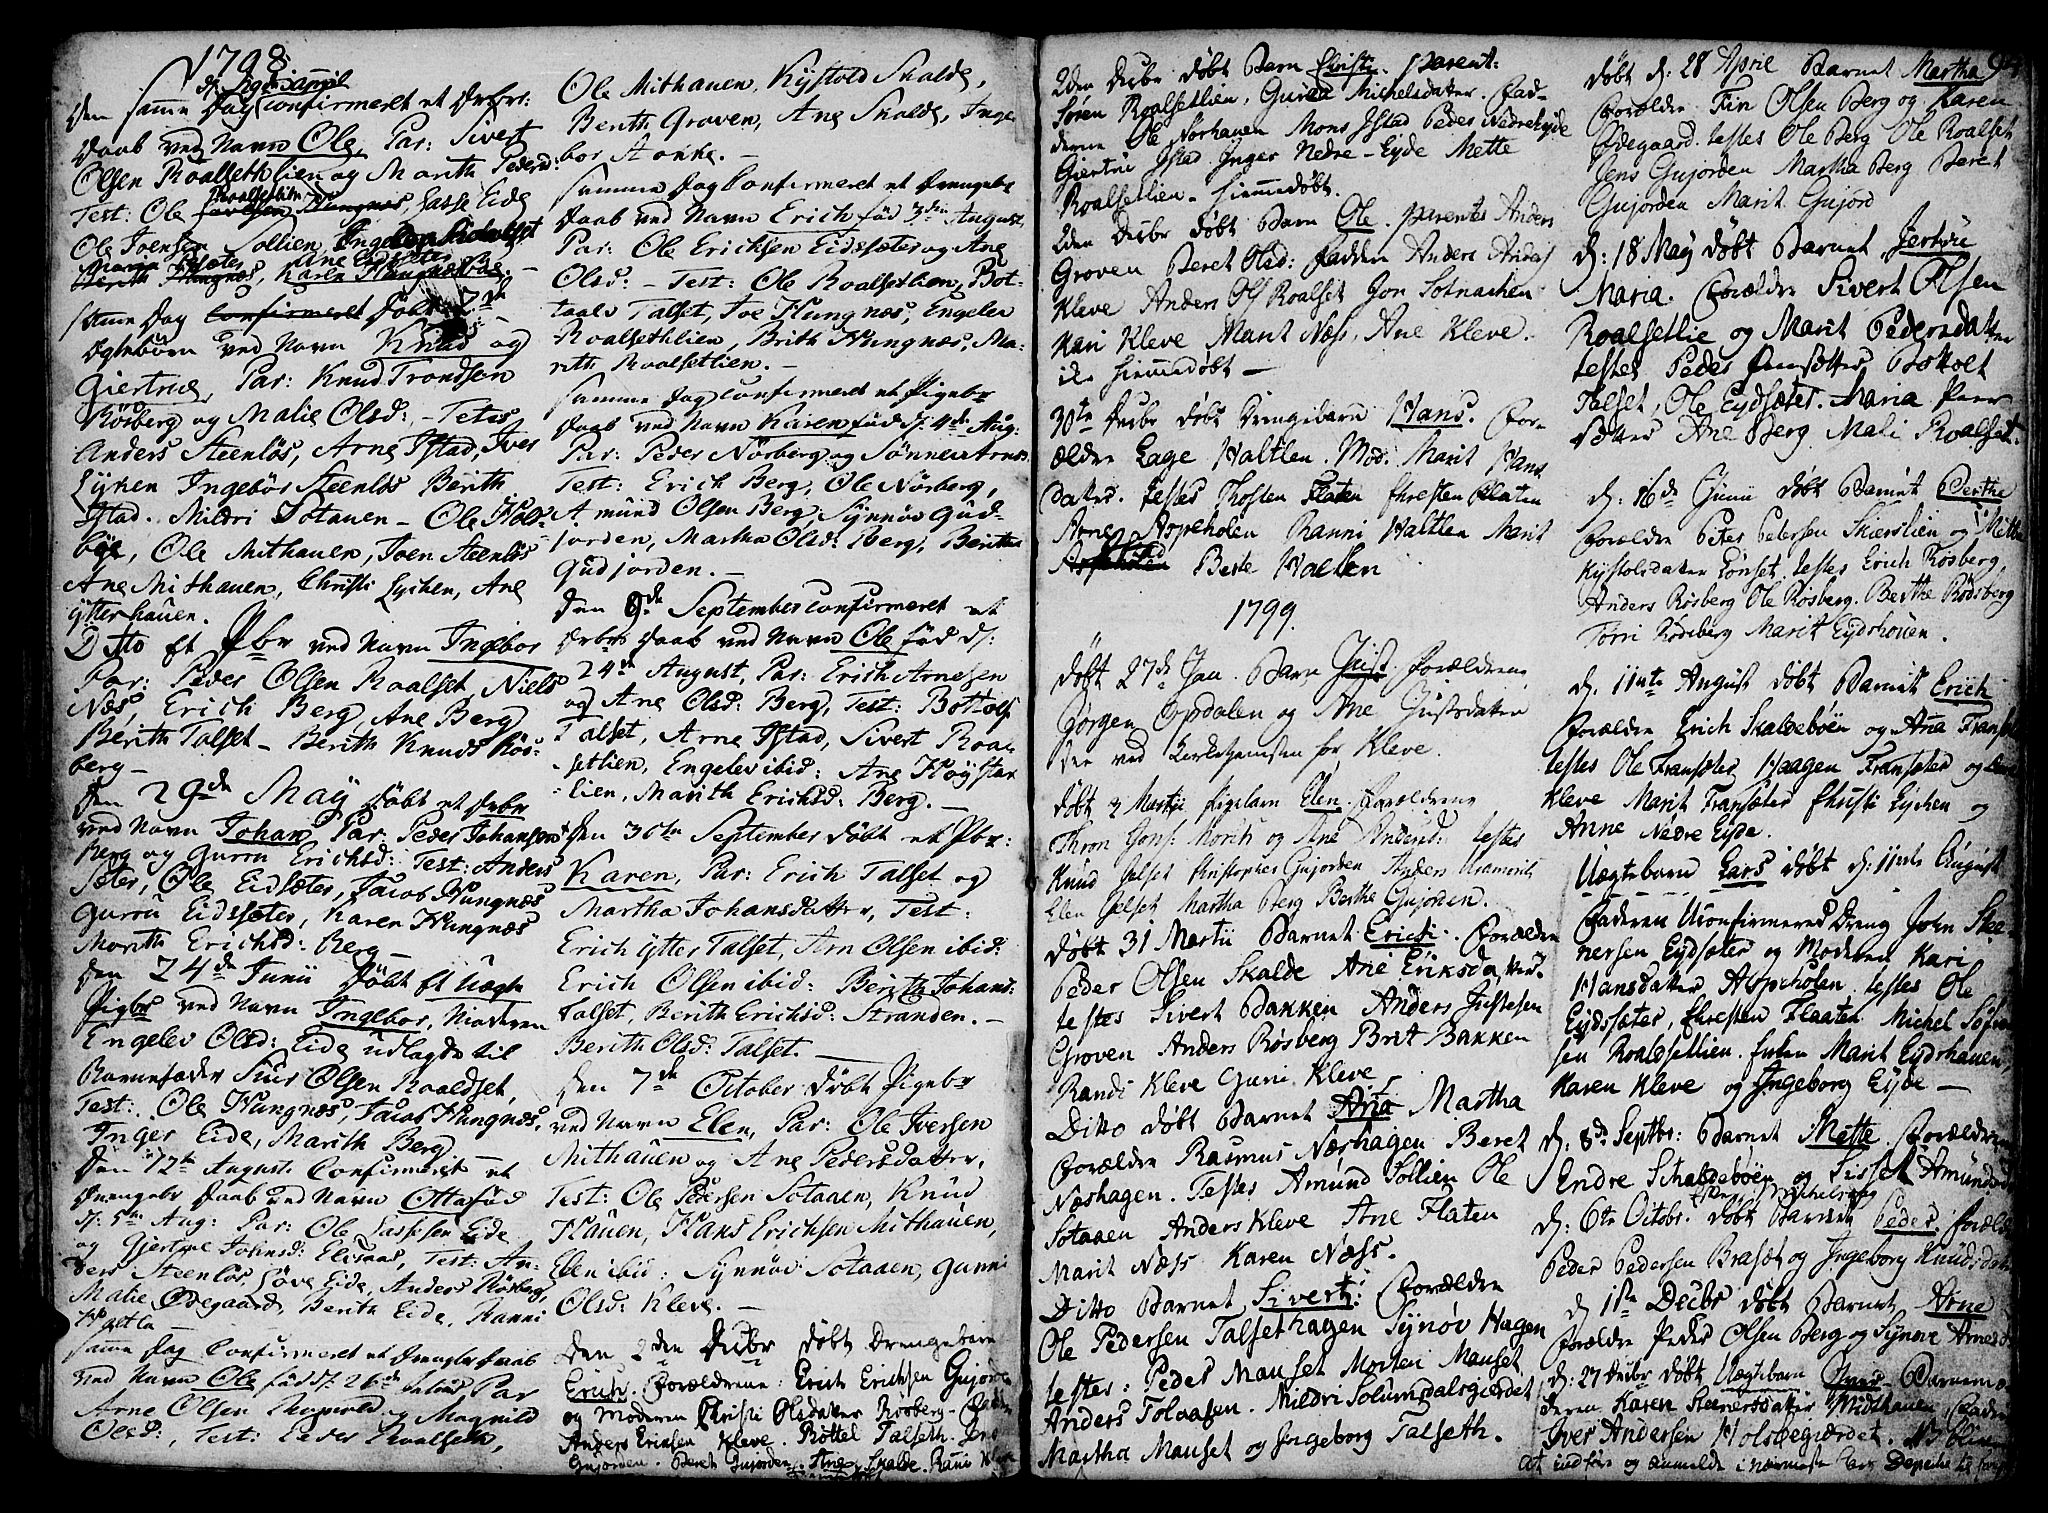 1798
d: 29de april
den samme Dag Confirmeret et Drbr:
Daab ved Navn Ole, Par: Sivert
Olsen Roallsethlien og Marith Peders:
Roalsetlien
Test: Ole Hungnæs, Lasse Eide
Ole Joensen Sollien, Ingeleu
Berith Hungnæs, Karen Hungnæs
samme Dag Confirmeret Døbt 2de
Ægtebørn ved Navn Knud og
Giertrue, Par: Knud Trondsen
Rösberg og Malie Olsd: - Testes
Anders Steenløs, Arne Istad, Iver
Lyken Ingebor Steenløs Berith
Istad. Mildri Sotauen - Ole Hols-
bye, Ole Mithauen, Joen Steenløs
Ane Mithauen, Christi Lychen, Ane
ytterhauen.
Ditto et Pbr ved Navn Ingebor
Par: Peder Olsen Roalset, Niels
Næs, Erich Berg, Ane Berg
Berith Talset - Berith Knuds Rös-
berg -
den 29de May Døbt et Drbr
ved Navn Johan Par: Peder Johansen
Berg og Gurru Erichsd: Test: Anders
Sæter, Ole Eidsæter, Jacob Hungnæs
Gurru Eidssæter, Karen Hungnæs
Marith Erichsd: Berg -
den 24de Junii Døbt et Uægte
Pigebr ved Navn Ingebor, Moderen
Engelev Olsd: Eide udlagde til
Barnefader Siur Olsen Roaldset,
Test: Ole Hungnæs, Jacob Hungnæs,
Inger Eide, Marith Berg
den 12te August Confirmeret et
Drengebr Daab ved Navn Otta fød
d: 5te Aug: Par: Ole Lassesen Eide
og Gjertrue Johnsd: Elisaas, Test: An-
ders Steenløs Löve Eide, Anders Rösberg,
Malie Ødegaard, Berith Eide, Ranni
Haltla -
samme Dag Confirmeret et Drengebr Daab
ved Navn Ole fød d: 26de Par
Arne Olsen og Magnild
Olsd:, Test: Peder Roalseth,
Ole Mithauen, Kystold Skalde,
Berith Groven, Ane Skalde, Inge
bor Aakke. -
samme Dag Confirmeret et Drengebr
Daab ved Navn Erich fød 3die August,
Par: Ole Ericksen Eidssæter og Ane
Olsd: - Test: Ole Roalsetlien, Bot-
taals Talset, Joe Hungnæs, Engelev
Roalsethlien, Brith Hungnæs, Ma-
rith Roalsettlien. -
samme Dag Confirmeret et Pigebr
Daab ved Navn Karen fød d: 4de Aug:
Par: Peder Nörberg og Sönnev Arnes.
Test: Erich Berg, Ole Nörberg,
Amund Olsen Berg, Synnöv Gud-
jorden, Martha Olsd: Berg, Berith
Gudjorden. -
den 9de September Confirmeret et
Drbr Daab ved Navn Ole fød d:
24de August, Par: Erich Arnesen
og Ane Olsd: Berg, Test: Bottolf
Talset, Arne Istad, Sivert Roal-
setlien, Engelev ibid: Ane Høystak-
lien, Marith Erichsd: Berg. -
den 30te September Døbt et Pbr:
Karen, Par: Erich Talset og
Martha Johansdatter, Test:
Erich ytter Talset, Arn Olsen ibid:
Erich Olsen ibid: Berith Johans:
Talset, Berith Erichsd: Stranden. -
Berith Olsd: Talset. -
den 7de October Døbt Pigebr
ved Navn Elen, Par: Ole Iversen
Mithauen og Ane Pedersdatter,
Test: Ole Pedersen Sotaaen, Knud
Hauen, Hans Erichsen Mithauen,
Elen ibid: Synnöv Sotaaen, Gunni
Olsd: Kleve. -
Den 2den Decbr Døbt Drengebarn
Erich. Forældrene: Erich Erichsen Gujorden
og Moderen Christi Olsdatter Rosberg - Faddere
Anders Eriksen Kleve. Bottel Talseth. Jens
Gujorden. Beret Gujorden. Ane Skalde. Rani Kleve
2den Decbr Døbt Barn Christi. Parent:
Søren Roalsetlien, Gurea Michelsdatter. Fad-
derne Ole Norhauen Mons Istad Peder Nedreeyde
Giertru Istad Inger Nedre-Eyde Mette
Roalsetlien - hiemmedøbt.
2den Decbr Døbt Barn Ole. Parentes Anders
Groven Beret Olsd: Faddere Anders Anders
Kleve Anders Ols Roalset Jon Sotnachen
Kari Kleve Marit Næss, Ane Kleve.
ike hiemmedøbt -
30te Decbr Døbt Drengebarn Hans. For-
ældre Lage Haltlen. Mod. Marit Hans
Datter. Testes Thosten Flaten Christen Flaten
Arne Aspeholen Ranni Haltlen Marit
Aspeholen Berte Halten
1799.
Døbt 27de Jan. Barn Just. Forældrene
Jørgen Opdalen og Ane Justsdatter
Døbt 3 Martii Pigebarn Elen. Forældrene
Thron Jons: Morits og Ane Andersd: testes
Knud Jalset Christopher Gujorden Anders
Elen Jalset Martha Berg Berthe Gujorden.
Døbt 31 Martii Barnet Erich. Forældre
Peder Olsen Skalde Ane Eriksdatter.
testes Sivert Bakken Anders Justesen
Groven Anders Røsberg Brit Bakken
Randi Kleve Guni Kleve
Ditto Døbt Barnet Ana Martha
Forældre Rasmus Næshagen Beret
Næshagen. Testes Amund Sollien Ole
Sotaaen Anders Kleve Ane Flaten
Marit Næss Karen Næss.
Ditto Barnet Sivert: Forældre
Ole Pedersen Talsethagen Synøv Hagen
testes: Peder Mauset Morten Mauset
Anders Tolaasen. Mildri Solumsdalsgierdet
Martha Mauset og Ingeborg Talseth.
94
Døbt d: 28 April Barnet Martha
Forældre Fin Olsen Berg og Karen
Ødegaard. testes Ole Berg Ole Roalset
Jens Gujorden Martha Berg Beret
Gujorden Marit Gujord
d: 18 May Døbt Barnet Jertrue
Maria. Forældre Sivert Olsen
Roalsetlie og Marit Pedersdatter
testes Peder Botholt
Talset, Ole Eydsæter. Maria
sætter Ane Berg Mali Roalset.
d: 16de Junii Døbt Barnet Berthe
Forældre Peter Petersen Skiærslien og Mette
Kystolsdatter Tønset testes Erich Røsberg,
Anders Røsberg Ole Røsberg. Berthe Rødsberg
Torri Røsberg Marit Eydshouen.
d. 11nte August Døbt Barnet Erich
Forældre Erich Skaldebøen og Ana Fransæter
testes Ole Fransæter Haagen Fransæter og
Kleve Marit Fransæter Christi Lychen og
Anne Nedre Eyde.
Uægtebarn Lars Døbt d: 11nte August
Faderen Uconfirmered Dreng John Stee-
nersen Eydsæter og Moderen Kari
Hansdatter Aspeholen. testes Ole
Eydsæter, Christen Flaaten Michel Søfren-
sen Roaldsetlien. Marit Eydshauen,
Karen Kleve og Ingeborg Eyde -
d. 8de Septbr: Barnet Mette. Forældrene
Endre Schaldebøen og Sisset Amundsd
d: 6te Octobr. Døbt Barnet Peder. Forældre
Peder Pedersen Brasæt og Ingeborg Knudsdat
d 1ste Decbr Døbt Barnet Arne
Forældre Peder Olsen Berg og Synøve Arnesd
d: 27 Decbr Døbt Uægtebarn Barnemo-
deren Karen Steenersdatter Midthauen, Fader
Iver Andersen Holsbegiærdet.
at indføre og anmelde i nærmeste